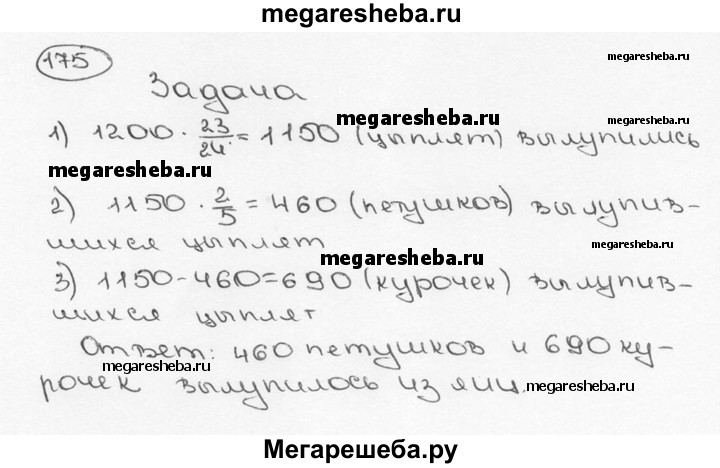 megaresheba.ru
175
megaresheba.ru
Задача
megaresheba.ru
1) 1200 · 23/24 = 1150 (цыплят) вылупились
megaresheba.ru
2) 1150 · 2/5 = 460 (петушков) вылупив-
шихся цыплят
megaresheba.ru
megaresheba.ru
3) 1150-460=690 (курочек) вылупив-
шихся цыплят
Ответ: 460 петушков и 690 ку-
рочек вылупилось из яиц.
megaresheba.ru
megaresheba.ru
Мегарешеба.ру